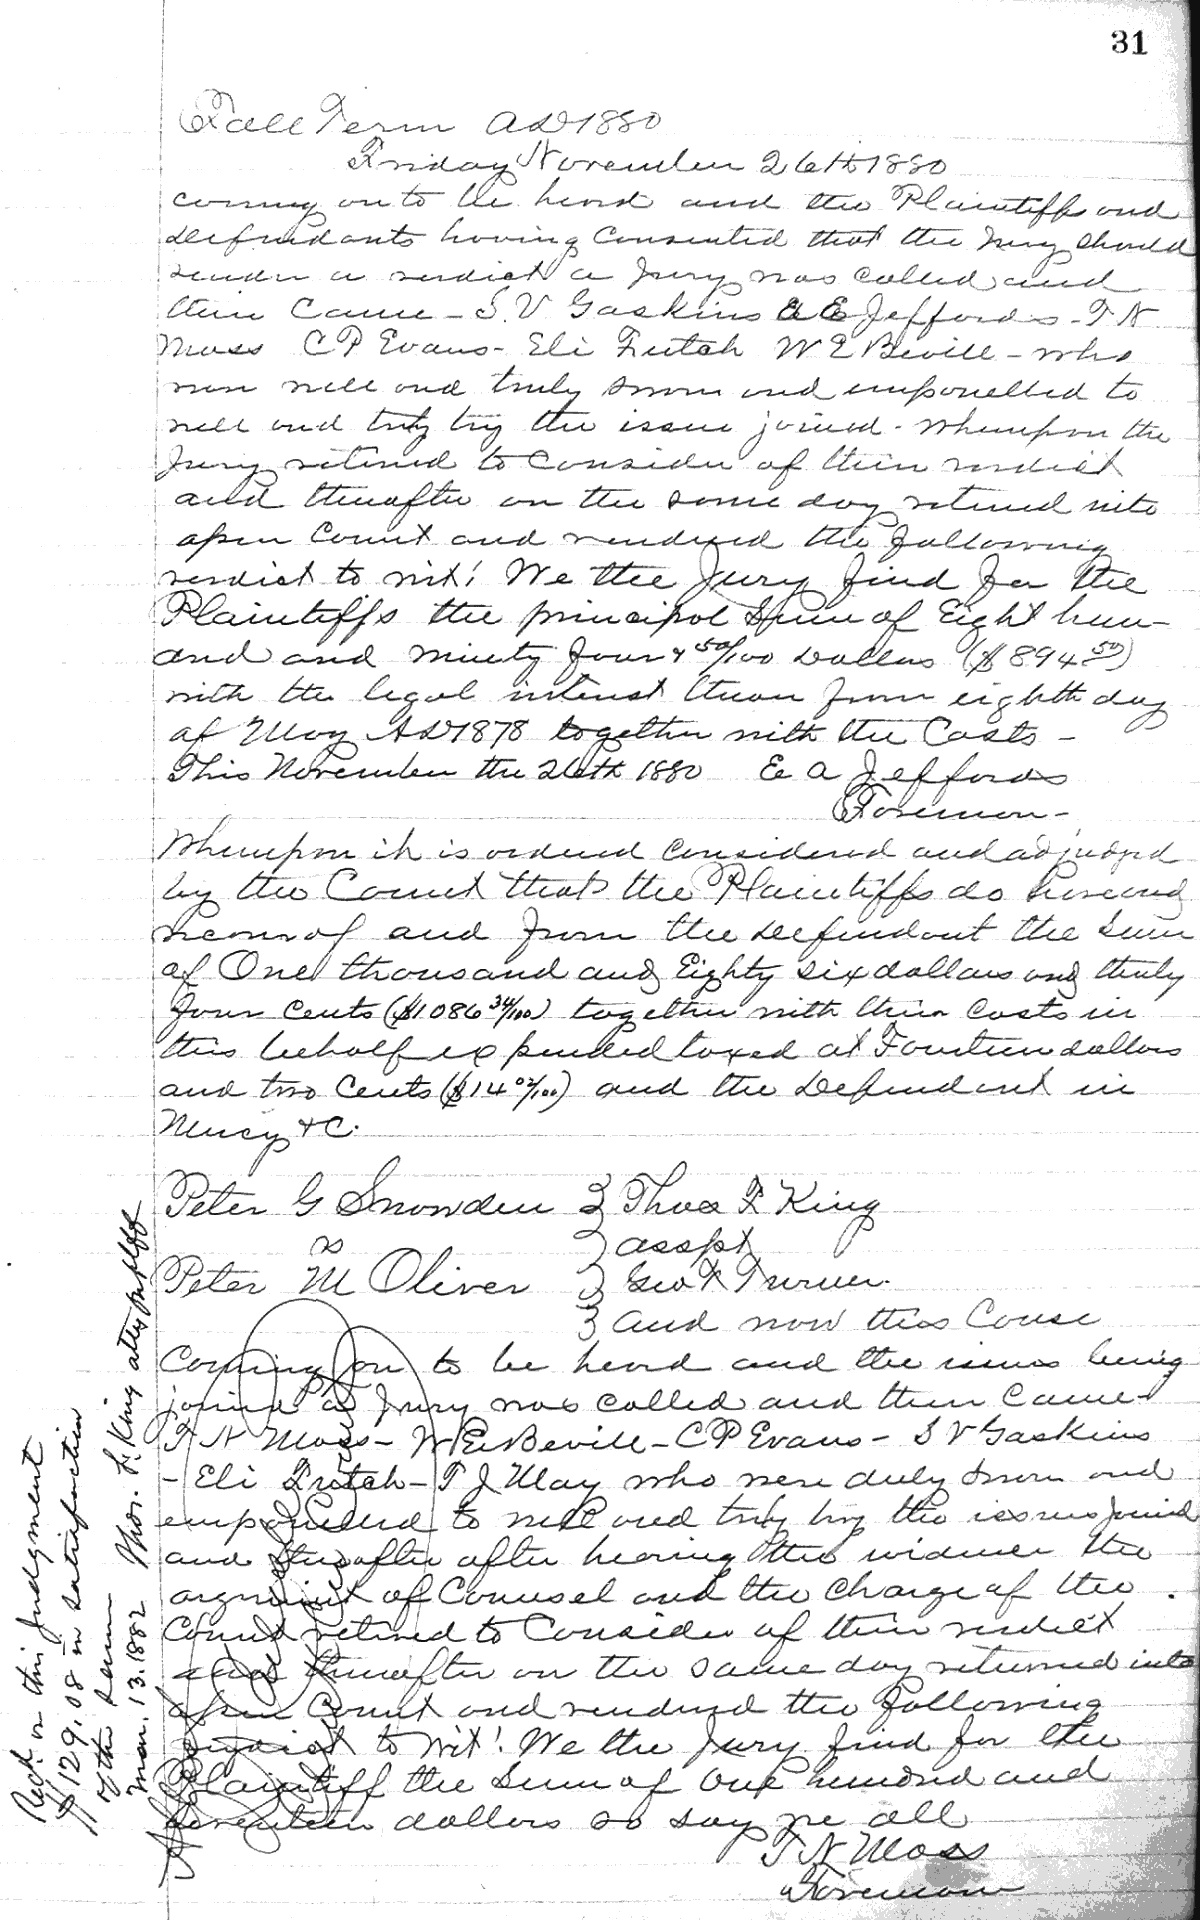 31
Fall Term AD 1880
Friday November 26th 1880
coming on to be heard and the Plaintiffs and
defendants having Consented that the Jury should
render a verdict a Jury was called and
then Came - S. V Gaskins E A Jeffords - T N
Moss C P Evans - Eli Futch W E Bevill - who
were well and truly sworn and empanelled to
well and truly try the issue joined - Whereupon the
Jury retired to Consider of their verdict
and thereafter on the same day retired into
open Court and rendered the following
verdict to wit! We the Jury find for the
Plaintiffs the principal Sum of Eight hun-
dred and Ninety four & 50/100 Dollars ($894.50)
with the legal interest thereon from eighth day
of May AD 1878 together with the Costs -
This November the 26th 1880 E A Jeffords
Foreman -
Whereupon it is ordered Considered and adjudged
by the Court that the Plaintiffs do have and
recover of and from the Defendant the Sum
of One thousand and Eighty six dollars and thirty
four Cents ($1086 34/100) together with their Costs in
this behalf expended taxed at Fourteen dollars
and two Cents ($14 02/100) and the Defendant in
Mercy &C.
Peter G Snowden } Thos F King
vs } asspt
Peter M Oliver } Geo F Turner.
} and now this Cause
Coming on to be heard and the issues being
joined a Jury was called and then Came -
T N Moss - W E Bevill - C P Evans - S V Gaskins
- Eli Futch - T J May who were duly sworn and
empanelled to well and truly try the issues joined
and thereafter after hearing the evidence the
argument of Counsel and the Charge of the
Court retired to Consider of their verdict
and thereafter on the same day returned into
open Court and rendered the following
verdict to wit! We the Jury find for the
Plaintiff the Sum of One hundred and
Seventeen dollars so say we all
T N Moss
Foreman
Recd. on this Judgment
$129.08 in satisfaction
of the same
Mar. 13. 1882 Thos. F. King atty for plff